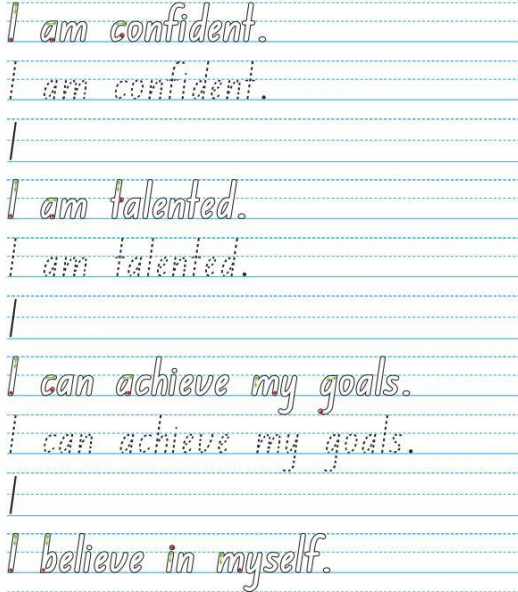 I am confident.
I am confident.
I
I am talented.
I am talented.
I
I can achieve my goals.
I can achieve my goals.
I
I believe in myself.